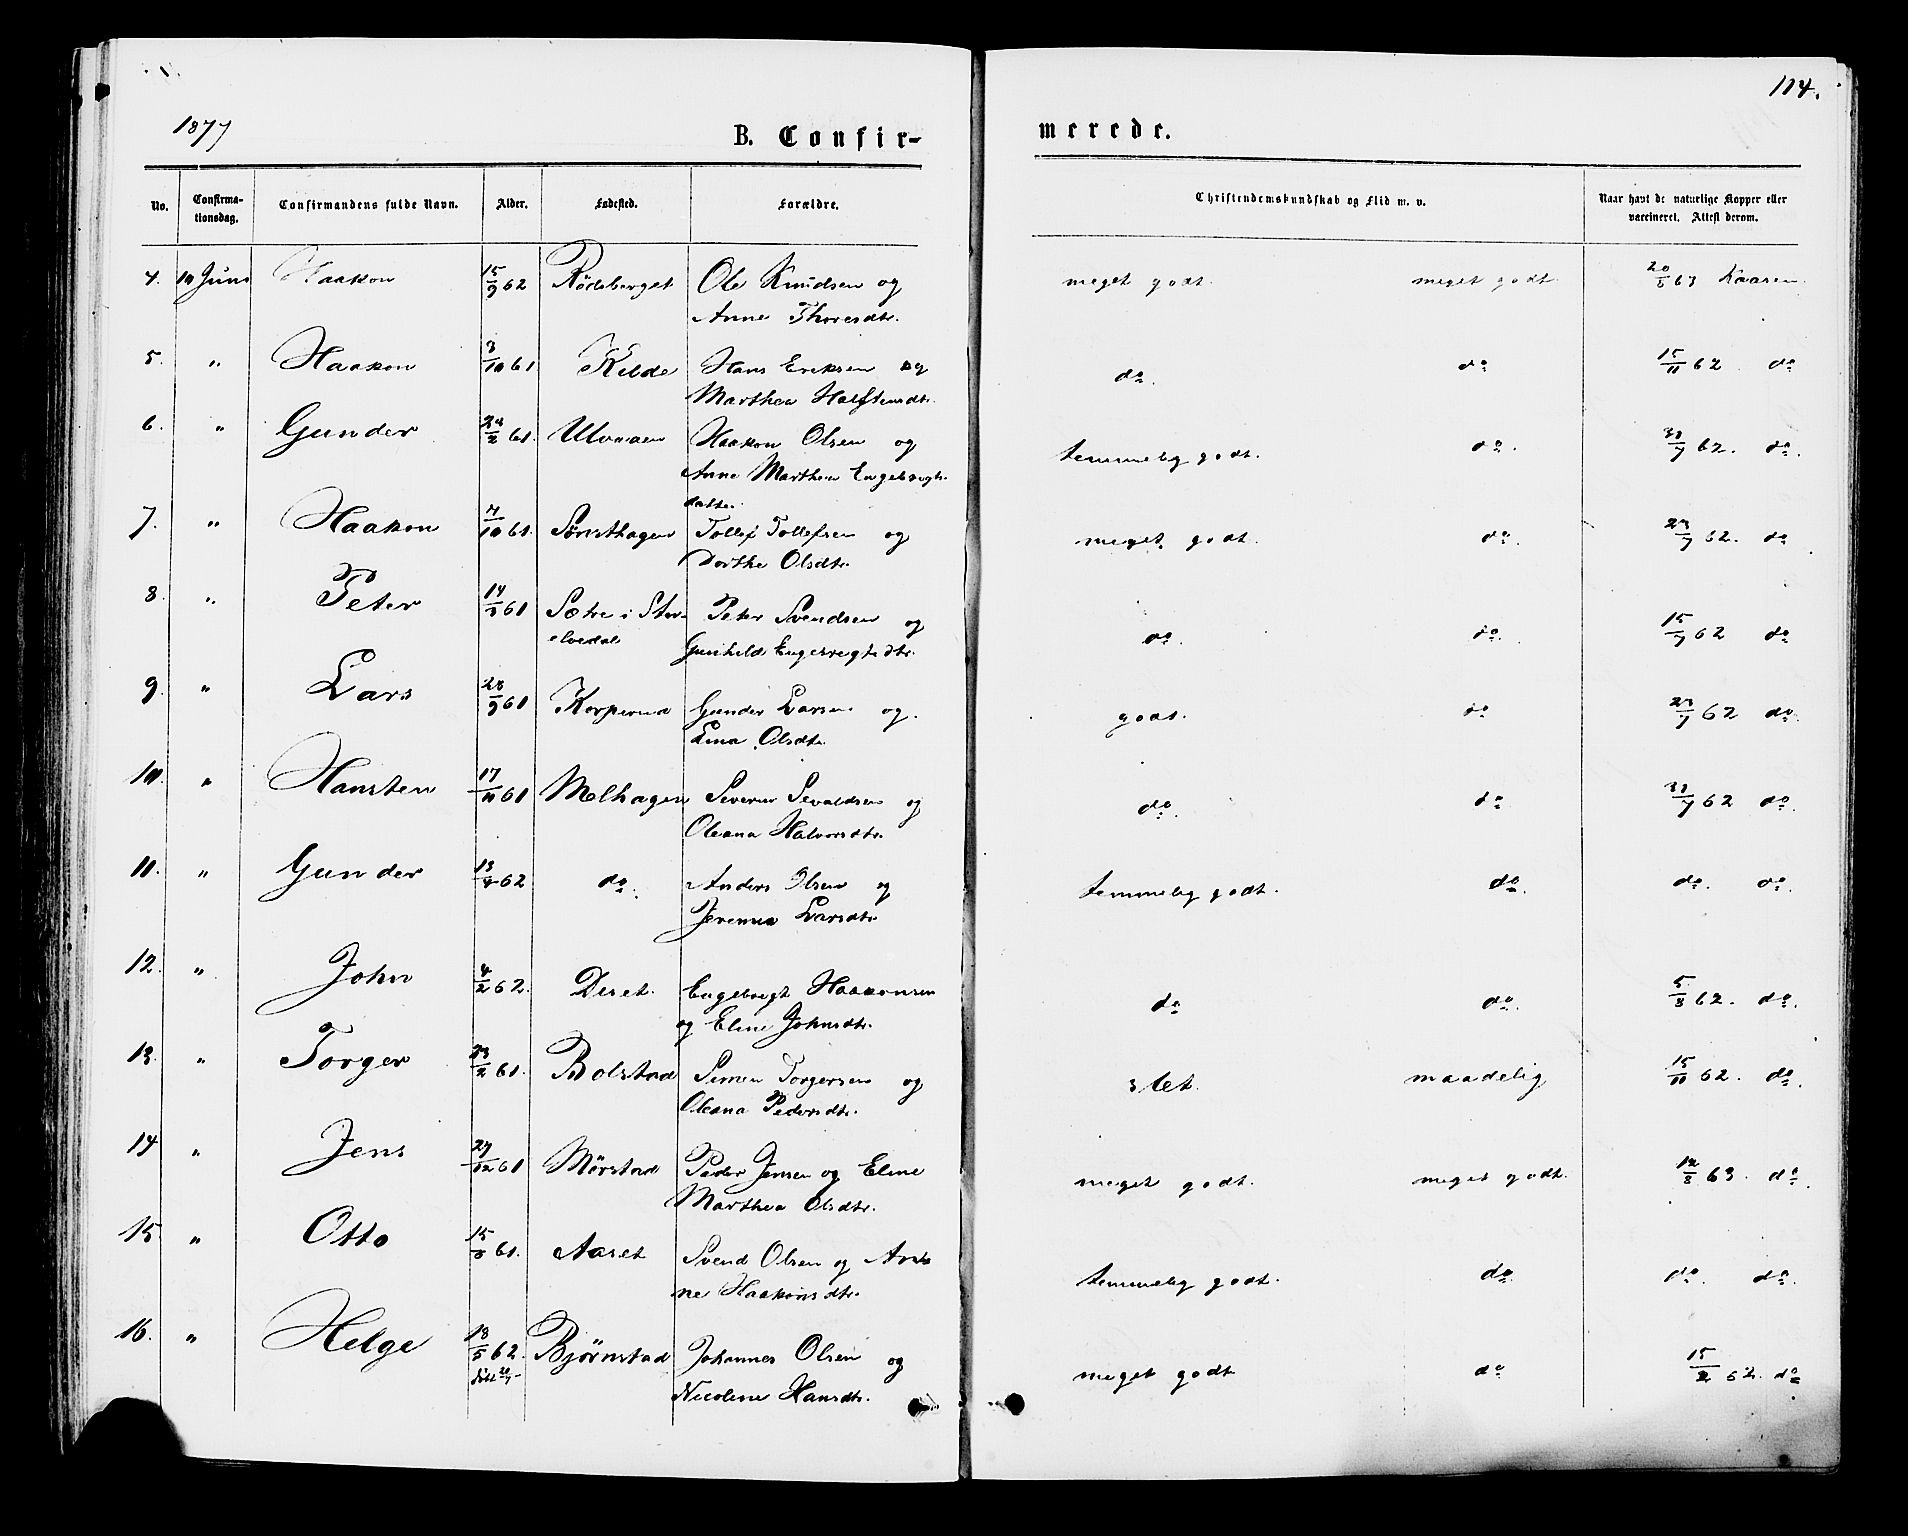 114.
1877
B. Confir- merede.
No. Confirma-tionsdag. Confirmandens fulde Navn. Alder. Fødested. Forældre. Christendomskundskab og Flid m. v. Naar havt de naturlige Kopper eller vaccineret. Attest derom.
4. 10 Juni Haakon 15/9 62 Rödsberget Ole Knudsen og meget godt. meget godt 20/5 63 Kaasen
Anne Thoresdtr.
5. " Haakon 3/10 61 Kilde Hans Eriksen og do. do 15/11 62 do
Marthea Halfstensdtr.
6. " Gunder 24/2 61. Ulvaaen Haakon Olsen og temmelig godt. do. 31/7 62. do.
Anne Marthea Engebregts
datter.
7. " Haakon 7/10 61. Sørsthagen Tollef Tollefsen og meget godt. do. 23/7 62. do
Dorthe Olsdtr.
8. " Peter 14/9 61 Sætre i Stor- Peter Svendsen og do. do. 15/7 62 do
elvedal Gunhild Engebregtsdtr.
9. " Lars 28/9 61 Korperud Gunder Larsen og. godt. do 23/7 62 do.
Lina Olsdtr.
10. " Hansten 17/11 61 Melhagen Severin Sevaldsen og do. do 31/7 62 do.
Oleana Halvorsdtr.
11. " Gunder 13/4 62 do. Anders Olsen og temmelig godt. do. do. do.
Jevenna Larsdtr
12. " John 4/2 62. Deset. Engebregt Haakonsen do do. 5/8 62. do.
og Eline Johnsdtr.
13. " Torger 23/2 61. Bolstad Simen Torgersen og slet. maadelig 15/11 62. do.
Oleana Pedersdtr.
14 " Jens 27/12 61 Mørstad Peder Jensen og Eline meget godt. meget godt. 12/8 63. do.
Marthea Olsdtr.
15 " Otto 15/8 61. Aaset Svend Olsen og An- temmelig godt. do. do. do.
ne Haakonsdtr.
16. " Helge 18/5 62. Bjørnstad Johannes Olsen og meget godt do 15/2 62. do
Nicoline Hansdtr.